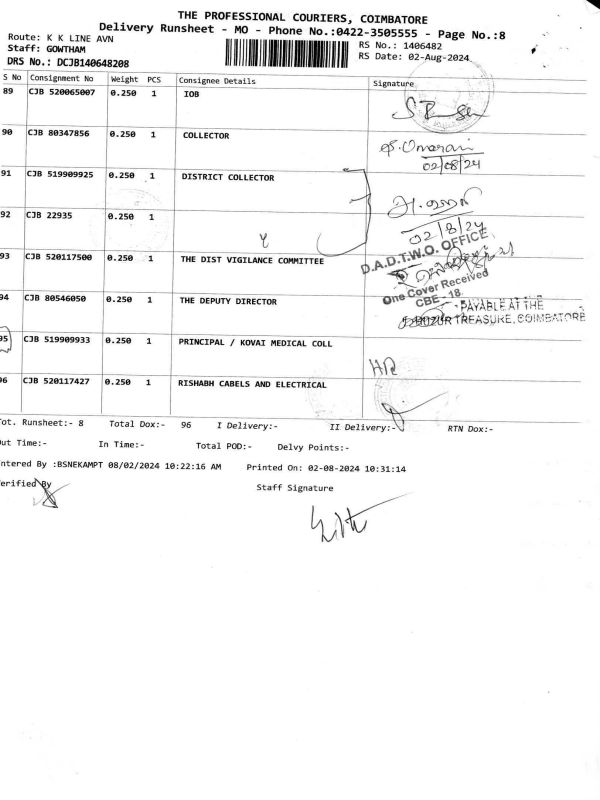 THE PROFESSIONAL COURIERS, COIMBATORE
Delivery Runsheet - MO - Phone No.:0422-3505555 - Page No.:8
Route: K K LINE AVN
RS No.: 1406482
Staff: GOWTHAM
RS Date: 02-Aug-2024
DRS No.: DCJB140648208
S No Consignment No Weight PCS Consignee Details Signature
89 CJB 520065007 0.250 1 IOB
90 CJB 80347856 0.250 1 COLLECTOR
02/08/24
91 CJB 519909925 0.250 1 DISTRICT COLLECTOR
92 CJB 22935 0.250 1
02/8/24
93 CJB 520117500 0.250 1 THE DIST VIGILANCE COMMITTEE
D.A.D.T.W.O. OFFICE
One Cover Received
CBE - 18.
94 CJB 80546050 0.250 1 THE DEPUTY DIRECTOR
PAYABLE AT THE
TREASURE, COIMBATORE
95 CJB 519909933 0.250 1 PRINCIPAL / KOVAI MEDICAL COLL
HR
96 CJB 520117427 0.250 1 RISHABH CABELS AND ELECTRICAL
Tot. Runsheet:- 8 Total Dox:- 96 I Delivery:- II Delivery:- RTN Dox:-
Out Time:- In Time:- Total POD:- Delvy Points:-
ntered By :BSNEKAMPT 08/02/2024 10:22:16 AM Printed On: 02-08-2024 10:31:14
erified By Staff Signature